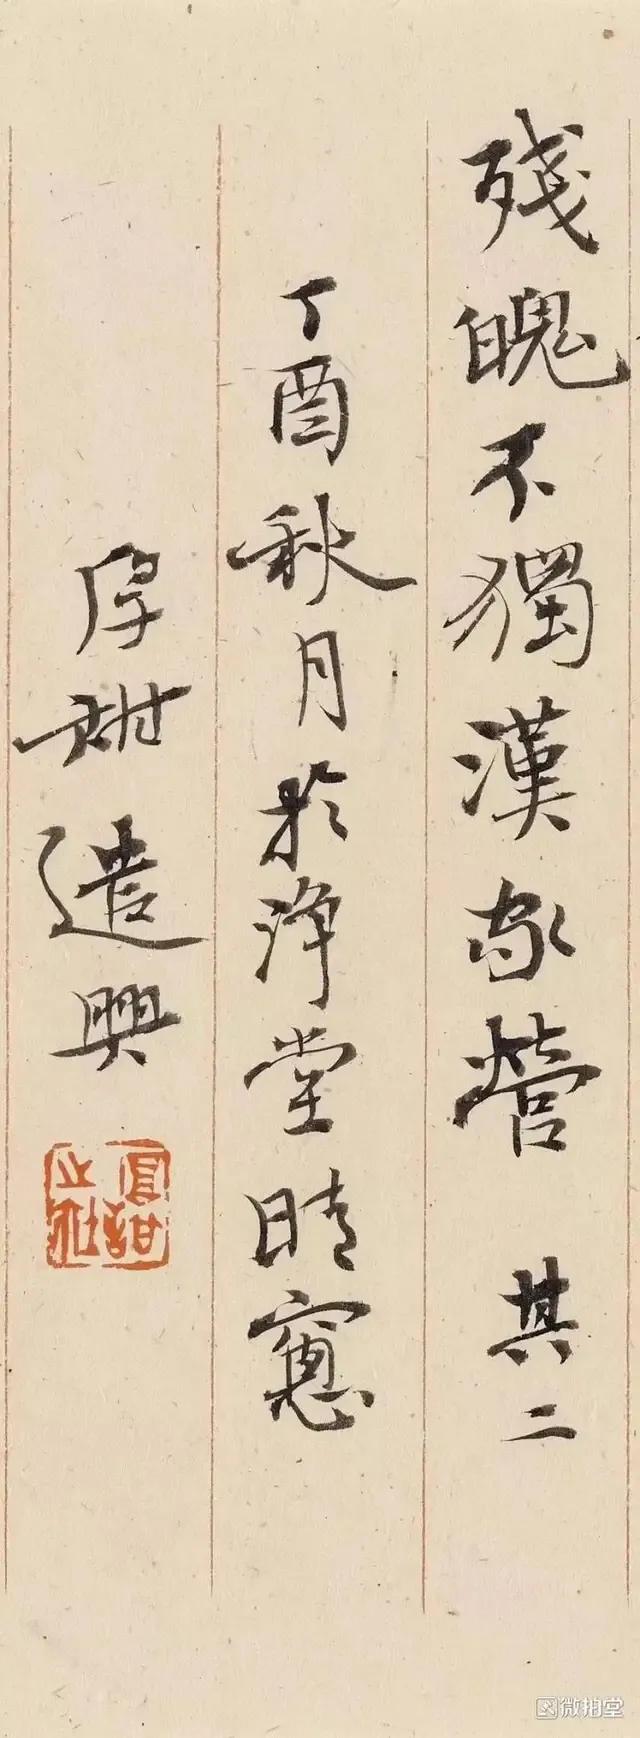 殘魄不獨漢家營 其二
丁酉秋月於淨堂晴窻
厚遣興
微拍堂